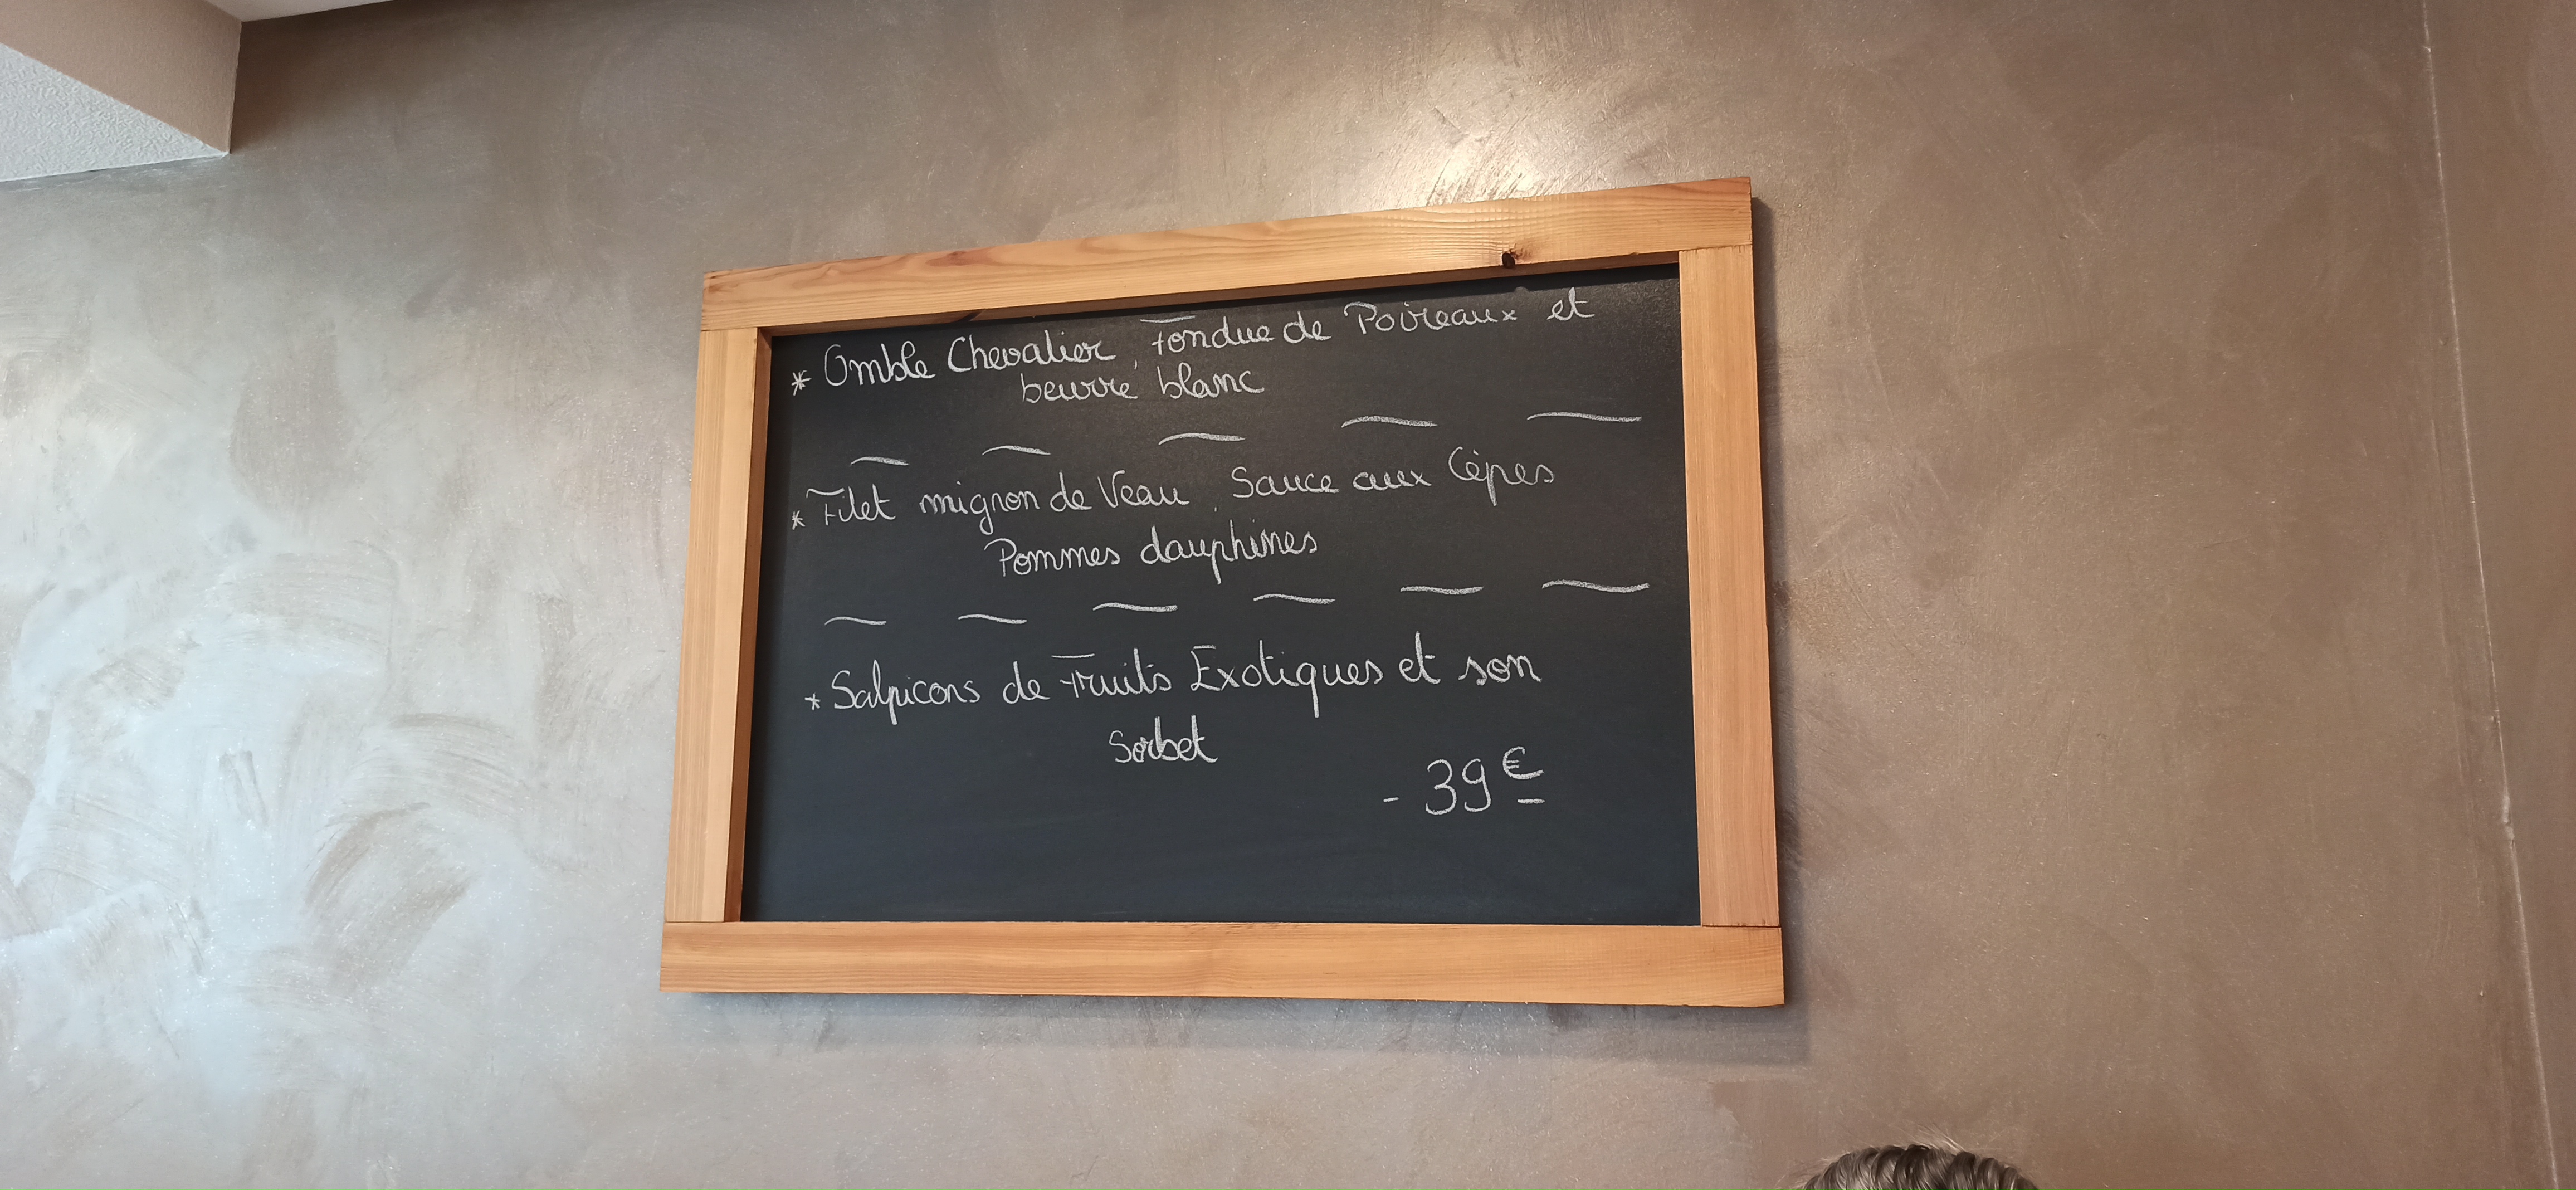 * Omble Chevalier, Fondue de Poireaux et
beurre blanc
* Filet mignon de Veau, Sauce aux Cèpes
Pommes dauphines
* Salpicons de Fruits Exotiques et son
Sorbet
- 39 €